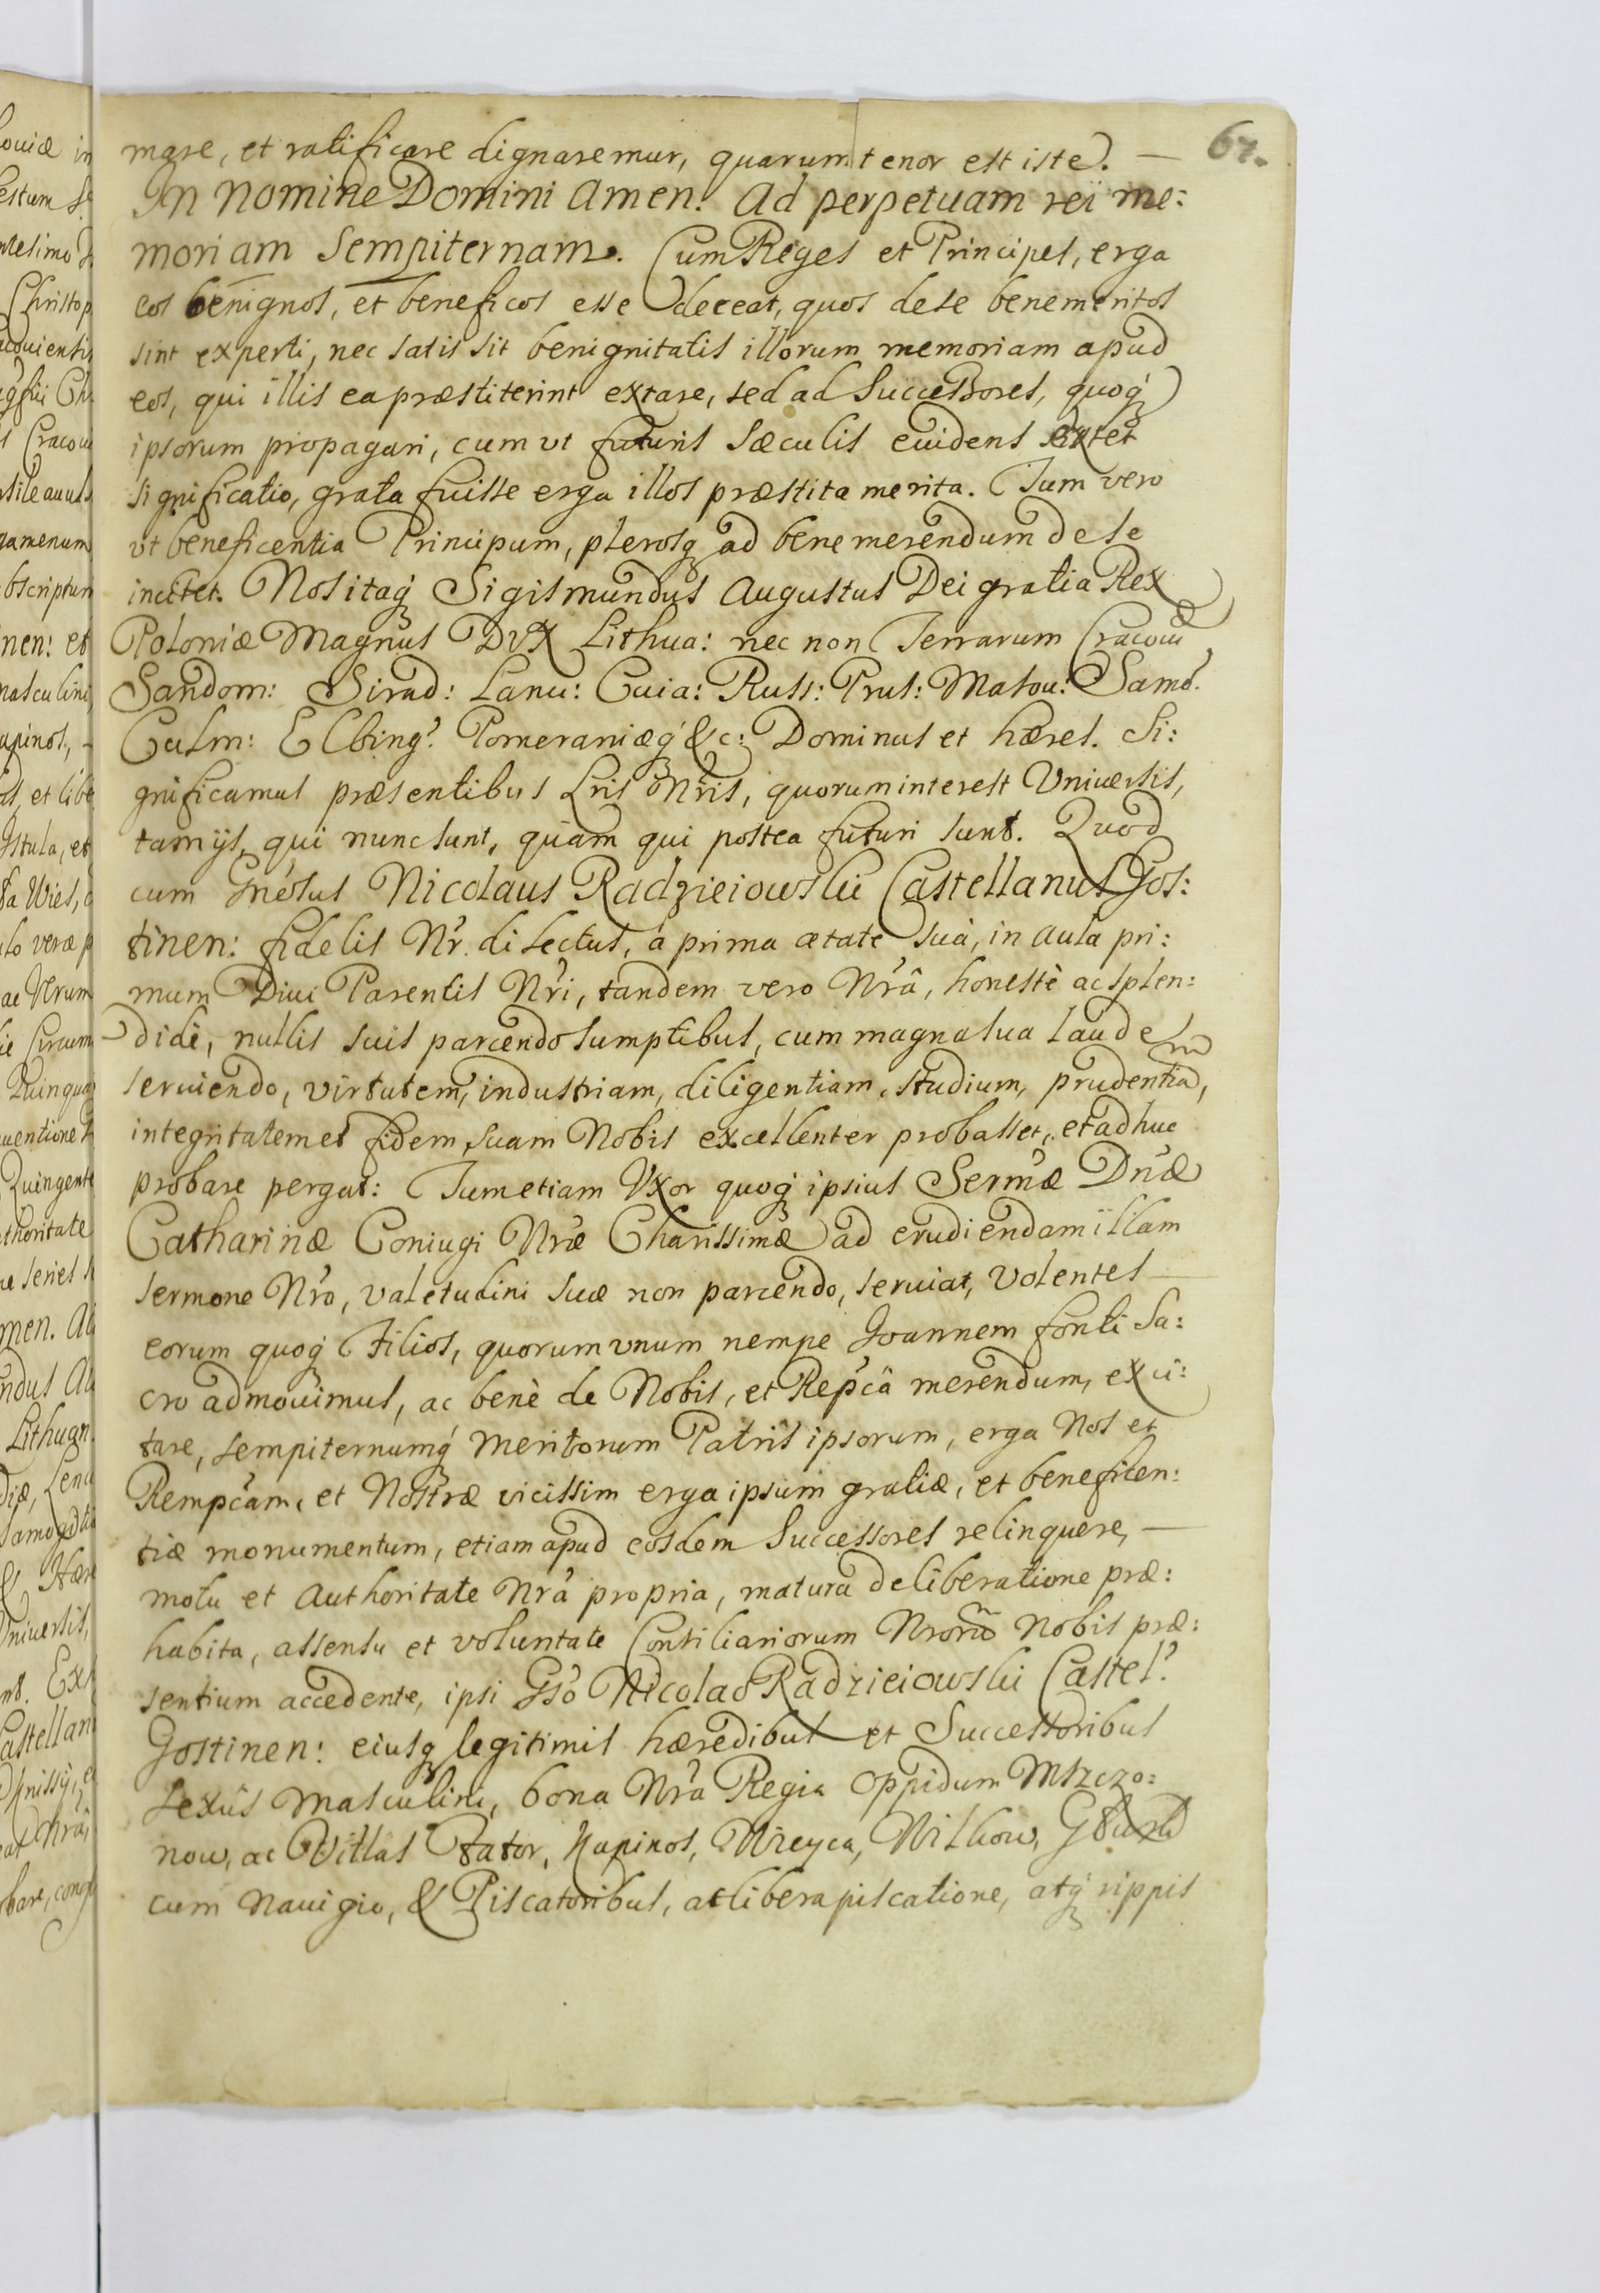 67.
mare, et ratificare dignaremur, quarum tenor est iste. —
In Nomine Domini Amen. Ad perpetuam rei me:
moriam Sempiternam. Cum Reges et Principes, erga
eos benignos, et beneficos esse deceat, quos de se benemeritos
sint experti, nec satis sit benignitatis illorum memoriam apud
eos, qui illis ea præstiterint extare, sed ad Successores, quoq́
ipsorum propagari, cum ut futuris sæculis evidens extet
significatio, grata fuisse erga illos præstita merita. Tum vero
ut beneficentia Principum, plerosq ad bene merendum de se
incitet. Nos itaq́ Sigismundus Augustus Dei gratia Rex
Poloniæ Magnus Dux Lithua: nec non Terrarum Cracouiæ,
Sandom: Sirad: Lanci: Cuia: Russ: Prus: Masou: Samo?
Culm: Elbing? Pomeraniæq́ &c: Dominus et hæres. Si:
gnificamus præsentibus Lris Nris, quorum interest Vniuersis,
tam ijs, qui nunc sunt, quàm qui postea futuri sunt. Quod
cum Gnérosus Nicolaus Radzieiowski Castellanus Gos:
tinen: fidelis Nr. dilectus, á prima ætate suâ, in aula pri:
mum Diui Parentis Nri, tandem vero Nrâ, honestè ac splen:
didè, nullis suis parcendo sumptibus, cum magna sua laude
seruiendo, virtutem, industriam, diligentiam, studium, prudentiam,
integritatem et fidem suam Nobis excellenter probasset, et adhuc
probare pergat: Tum etiam Vxor quoq́ ipsius Sermæ Dnæ
Catharinæ Coniugi Nræ Charissimæ ad erudiendam illam
sermone Nro, valetudini suæ non parcendo, seruiat, Volentes —
eorum quoq́ Filios, quorum vnum nempe Joannem fonti Sa:
cro admouimus, ac benè de Nobis, et Repcâ merendum, exci:
tare, sempiternumq́ meritorum Patris ipsorum, erga Nos et
Rempcam, et Nostræ vicissim erga ipsum gratiæ, et beneficen:
tiæ monumentum, etiam apud eosdem Successores relinquere, —
motu et Authoritate Nrâ propria, matura deliberatione præ:
habita, assensu et voluntate Consiliariorum Nrorum Nobis præ:
sentium accedente, ipsi Gso Nicolao Radzieiowski Castel?
Gostinen: eiusq legitimis hæredibus et Successoribus
sexûs Masculini, bona Nra Regia Oppidum Mszczo:
now, ac Villas Zator, Kapinos, Wieyca, Witkow,
cum Nauigio, & Piscatoribus, ac libera piscatione, atq́ rippis